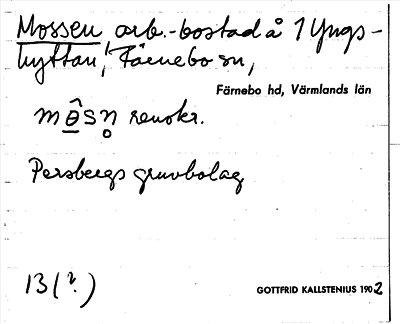 Mossen arb.-bostad å 1 Yngs-
hyttan, Färnebo sn,
Färnebo hd, Värmlands län
mɵ̂sn̥ renskr.
Persbergs gruvbolag
13 (?)
GOTTFRID KALLSTENIUS 1902